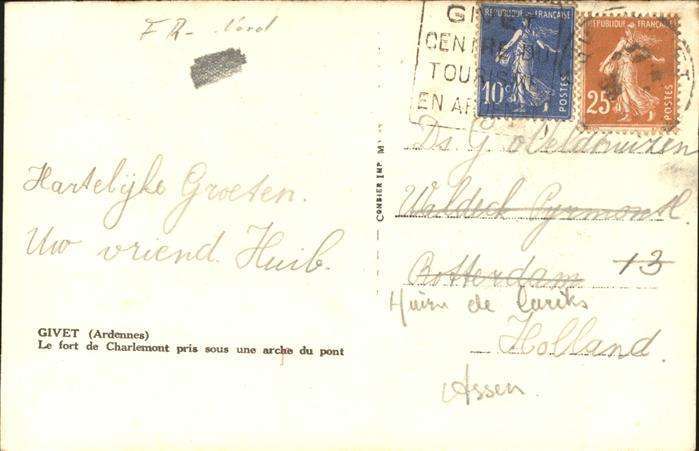 FR- Nord
Hartelijke Groeten.
Uw vriend Huib.
GIVET (Ardennes)
Le fort de Charlemont pris sous une arche du pont
COMBIER IMP
GIVET
CENTRE DU
TOURISME
EN AR
REPUBLIQUE FRANÇAISE
10c
POSTES
REPUBLIQUE FRANÇAISE
25
POSTES
Ds. J. Veldhuizen
Waldeck Pyrmontl.
Rotterdam 13
Huize de Lariks
Holland.
Assen.